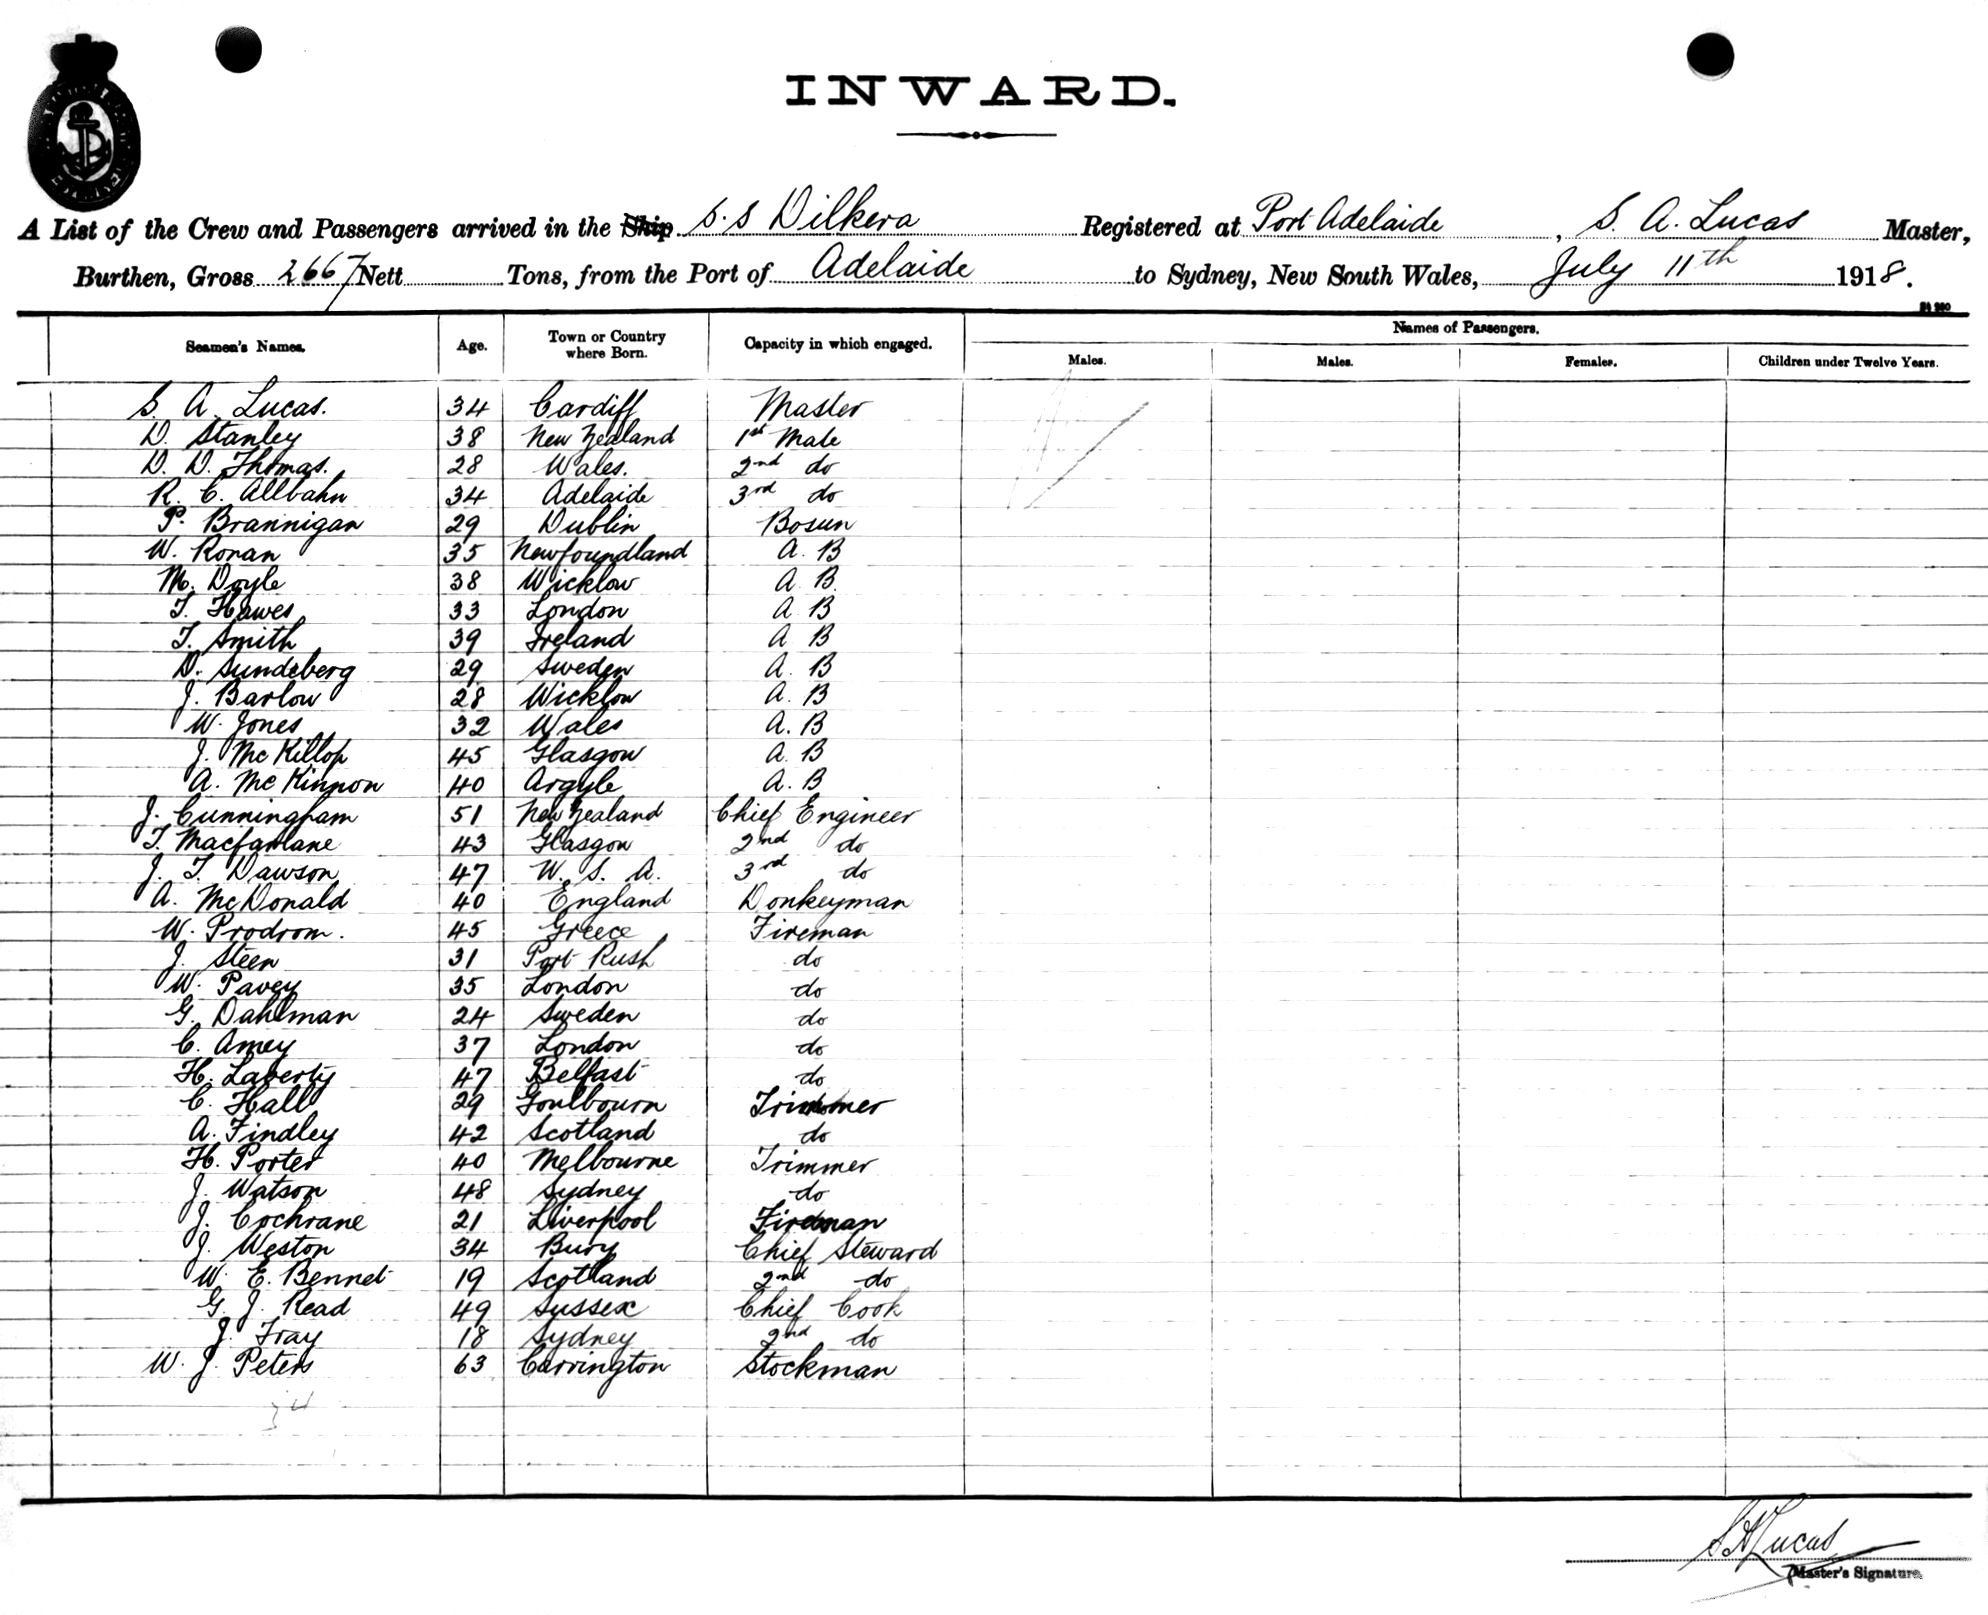 INWARD.
A List of the Crew and Passengers arrived in the Ship S.S Dilkera Registered at Port Adelaide, S. A. Lucas Master,
Burthen, Gross 2667 Nett Tons, from the Port of Adelaide to Sydney, New South Wales, July 11th 1918.
Names of Passengers.
Seamen's Names. Age. Town or Country where Born. Capacity in which engaged. Males. Males. Females. Children under Twelve Years.
S. A. Lucas. 34 Cardiff Master
D. Stanley 38 New Zealand 1st Mate
D. D. Thomas. 28 Wales. 2nd do
R. C. Allbahn 34 Adelaide 3rd do
P. Brannigan 29 Dublin Bosun
W. Ronan 35 Newfoundland A. B
M. Doyle 38 Wicklow A. B.
T. Hawes 33 London A B
T. Smith 39 Ireland A B
D. Sundeberg 29 Sweden A. B
J. Barlow 28 Wicklow A. B
W. Jones 32 Wales A. B
J. McKillop 45 Glasgow A. B
A. McKinnon 40 Argyle A. B
J. Cunningham 51 New Zealand Chief Engineer
T. Macfarlane 43 Glasgow 2nd do
J. T. Dawson 47 U. S. A. 3rd do
A. McDonald 40 England Donkeyman
W. Prodrom. 45 Greece Fireman
J. Steen 31 Port Rush do
W. Pavey 35 London do
G. Dahlman 24 Sweden do
C. Amey 37 London do
H. Laverty 47 Belfast do
C. Hall 29 Goulbourn Trimmer
A. Findley 42 Scotland do
H. Porter 40 Melbourne Trimmer
J. Watson 48 Sydney do
J. Cochrane 21 Liverpool Fireman
J. Weston 34 Bury Chief Steward
W. E. Bennet 19 Scotland 2nd do
G. J. Read 49 Sussex Chief Cook
J. Fray 18 Sydney 2nd do
W. J. Peters 63 Carrington Stockman
34
S A Lucas
Master's Signature.